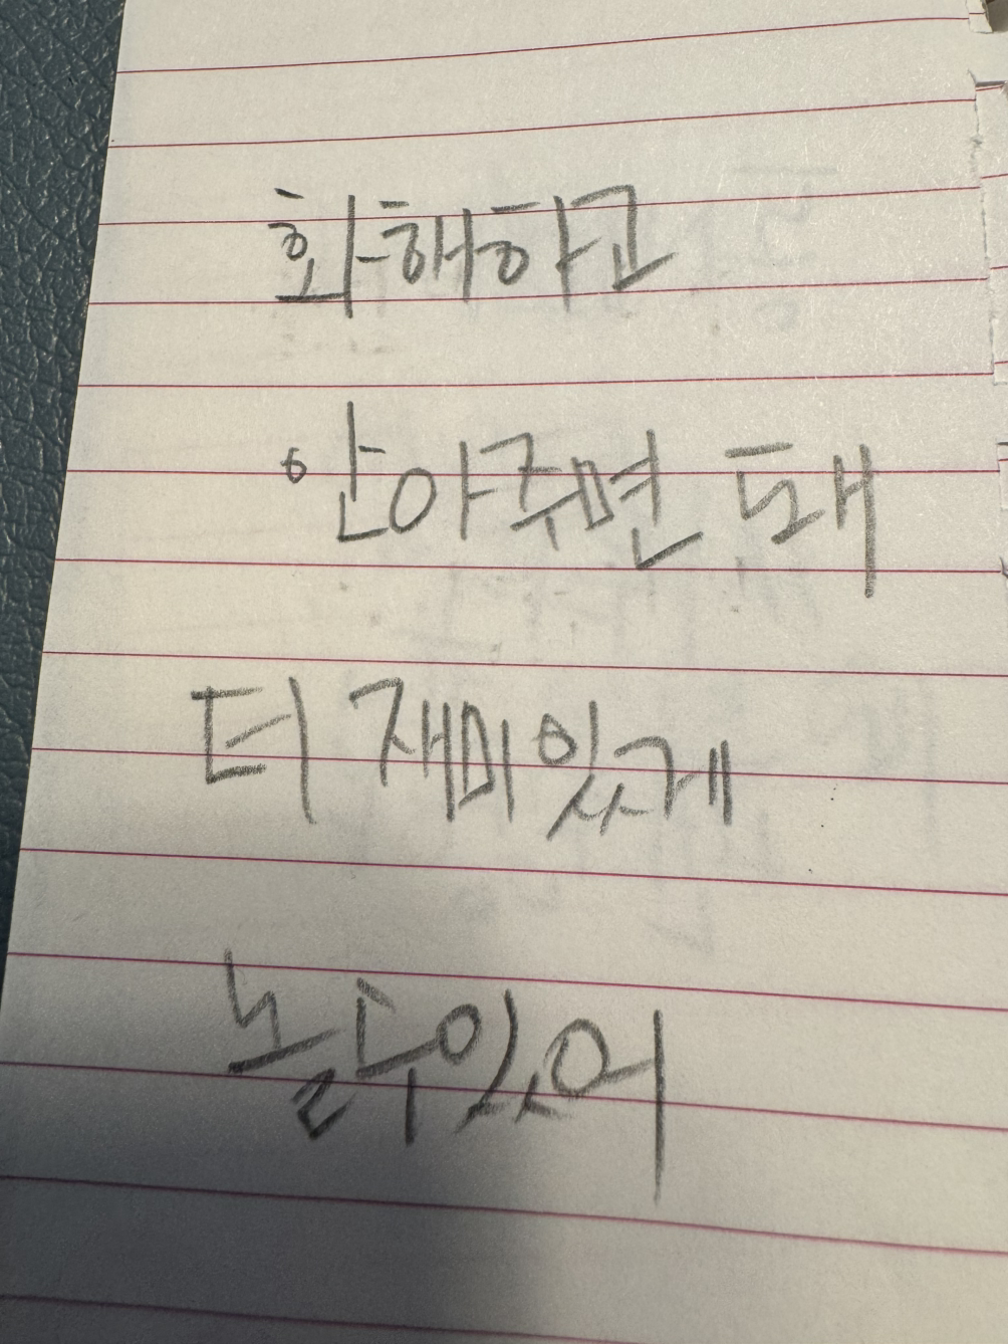 화해하고
안아주면 돼
더 재미있게
놀수있어